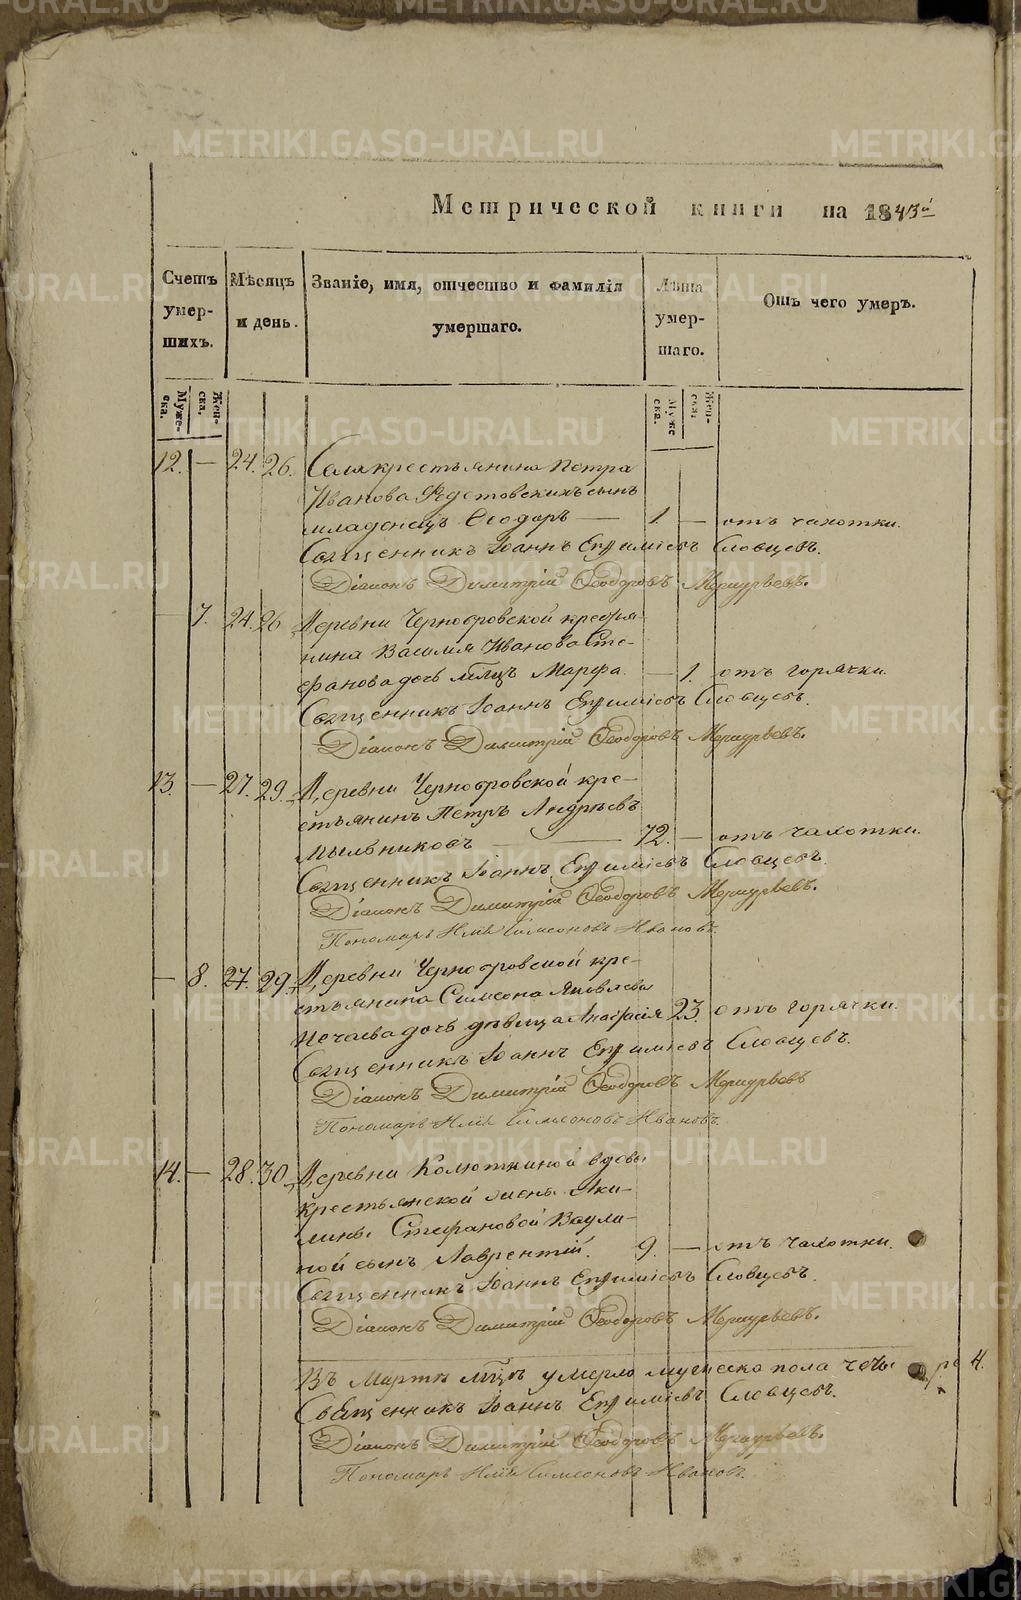 METRIKI.GASO-URAL.RU
Метрической книги на 1843й
Счетъ умер-шихъ.
Мѣсяцъ и день.
Званіе, имя, отчество и фамилія умершаго.
Лѣта умер-шаго.
Отъ чего умеръ.
Муже-ска.
Жен-ска.
Муже ска.
Жен-ска.
12. — 24. 26. Села крестьянина Петра
Иванова Федотовскихъ сынъ
младенецъ Ѳеодоръ — 1. — отъ чахотки.
Священникъ Іоаннъ Ефимьевъ Словцевъ.
Діаконъ Димитрій Ѳеодоровъ Меркурьевъ.
— 7. 24. 26 Деревни Чернобровской крестья-
нина Василья Иванова Сте-
фанова дочь млцъ Марфа. — 1. отъ горячки.
Священникъ Іоаннъ Ефимьевъ Словцевъ.
Діаконъ Димитрій Ѳеодоровъ Меркурьевъ.
13. — 27. 29. Деревни Чернобровской кре-
стьянинъ Петръ Андреевъ
Мыльниковъ — 72. — отъ чахотки.
Священникъ Іоаннъ Ефимьевъ Словцевъ.
Діаконъ Димитрій Ѳеодоровъ Меркурьевъ.
Пономарь Илія Симеоновъ Ивановъ.
— 8. 27. 29. Деревни Чернобровской кре-
стьянина Симеона Яковлева
Нечаева дочь дѣвица Анастасія 23. отъ горячки.
Священникъ Іоаннъ Ефимьевъ Словцевъ.
Діаконъ Димитрій Ѳеодоровъ Меркурьевъ
Пономарь Илія Симеоновъ Ивановъ.
14. — 28. 30. Деревни Колюткиной вдовы
крестьянской жены Аки-
лины Стефановой Ваули-
ной сынъ Лаврентій. 9. — отъ чахотки.
Священникъ Іоаннъ Ефимьевъ Словцевъ.
Діаконъ Димитрій Ѳеодоровъ Меркурьевъ.
Въ Мартѣ мцѣ умерло мужеска пола четы ре 4.
Священникъ Іоаннъ Ефимьевъ Словцевъ.
Діаконъ Димитрій Ѳеодоровъ Меркурьевъ.
Пономарь Илія Симеоновъ Ивановъ.